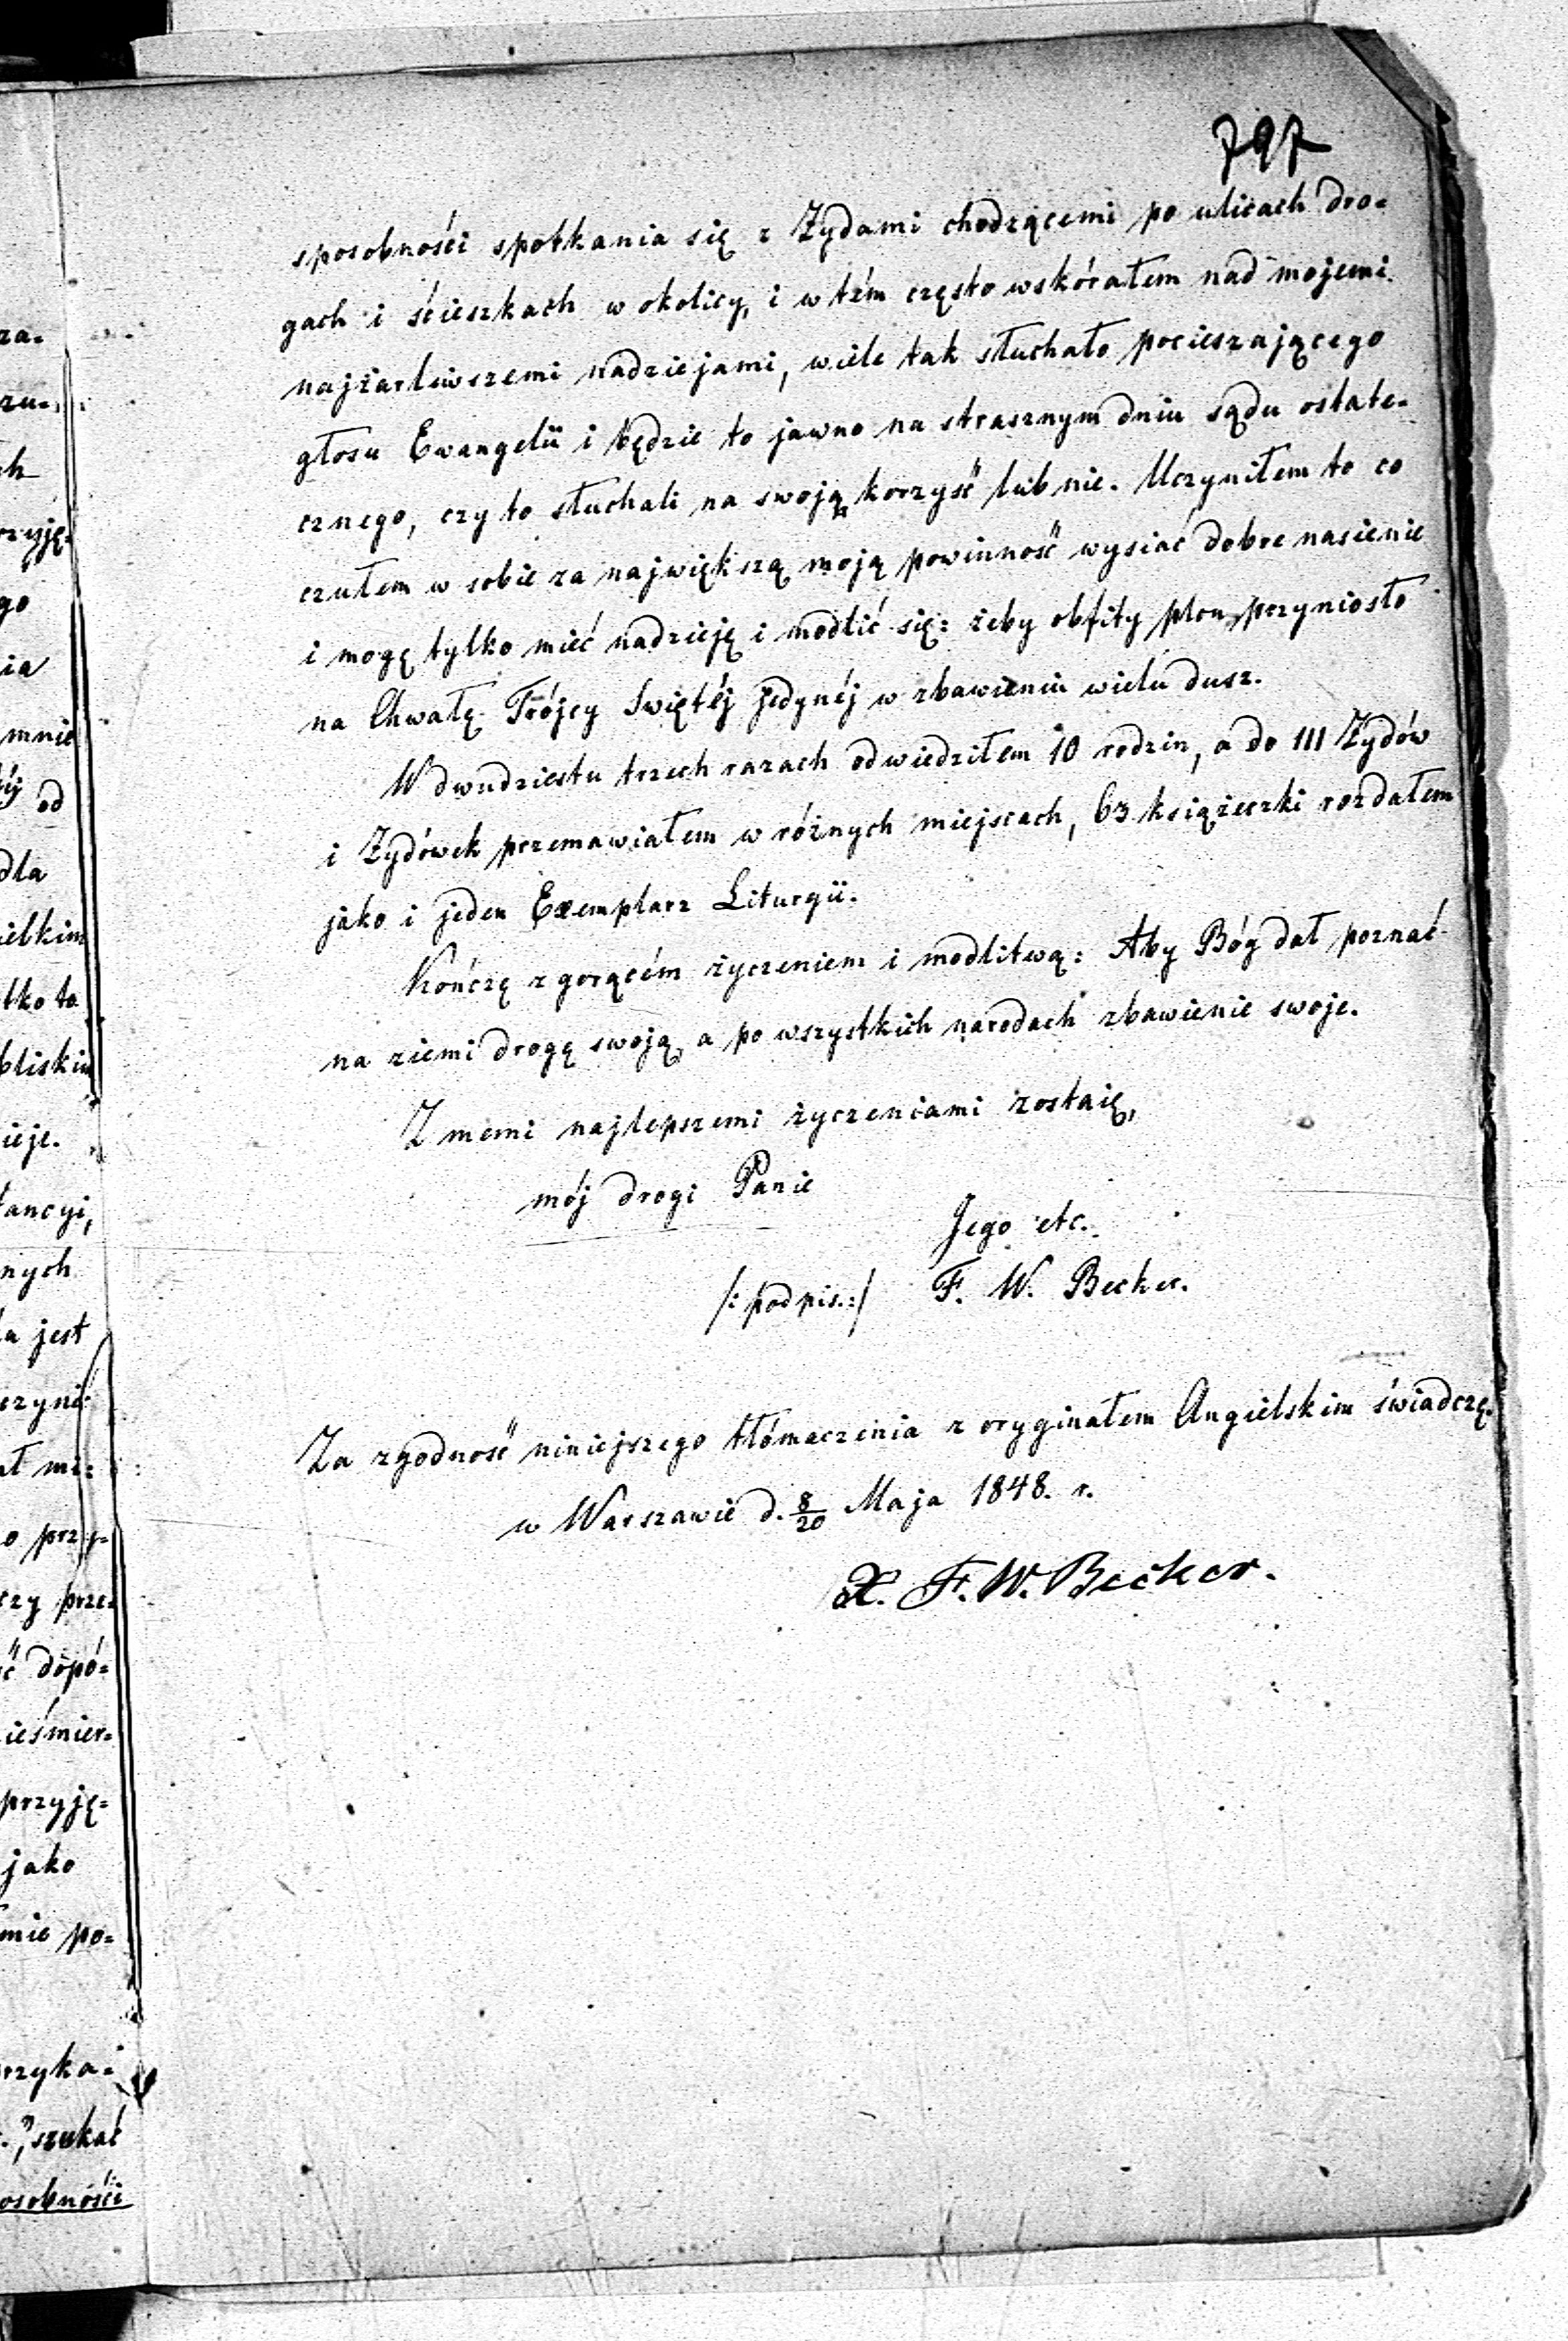 797
sposobności spotkania się z Żydami chodzącemi po ulicach dro=
gach i ścieszkach w okolicy, i w tém często wskórałem nad mojemi
najżarliwszemi nadziejami, wiele tak słuchało pocieszającego
głosu Ewangelii i będzie to jawno na strasznym dniu sądu ostate=
cznego, czy to słuchali na swoją korzyść lub nie. Uczyniłem to co
czułem w sobie za największą moją powinność wysiać dobre nasienie
i mogę tylko mieć nadzieję i modlić się: żeby obfity plon przyniosło
na Chwałę Trójcy Swiętéj jedynéj w zbawieniu wielu dusz.
W dwudziestu trzech razach odwiedziłem 10 rodzin, a do 111 Żydów
i Żydówek przemawiałem w różnych miejscach, 63 książeczki rozdałem
jako i jeden Exemplarz Liturgii.
Kończę z gorącém życzeniem i modlitwą: Aby Bóg dał poznać
na ziemi drogę swoją, a po wszystkich narodach zbawienie swoje.
Z memi najlepszemi życzeniami zostaię,
mój drogi Panie
Jego etc.
/: podpis.:/ F. W. Becker.
Za zgodność niniejszego tłómaczenia z oryginałem Angielskim świadczę.
w Warszawie d. 8/20 Maja 1848. r.
X. F. W. Becker.
za=
zu=
ch
przyję=
go
ia
mnie
od
dla
ielkim
lko to
bliskim
ieje.
łancyi,
nych
a jest
czyni=
ał mi=
o przy=
czy prze=
ść dopó=
ieśmier=
przyję=
jako
mie po=
rzyka=
"szukać
osobności